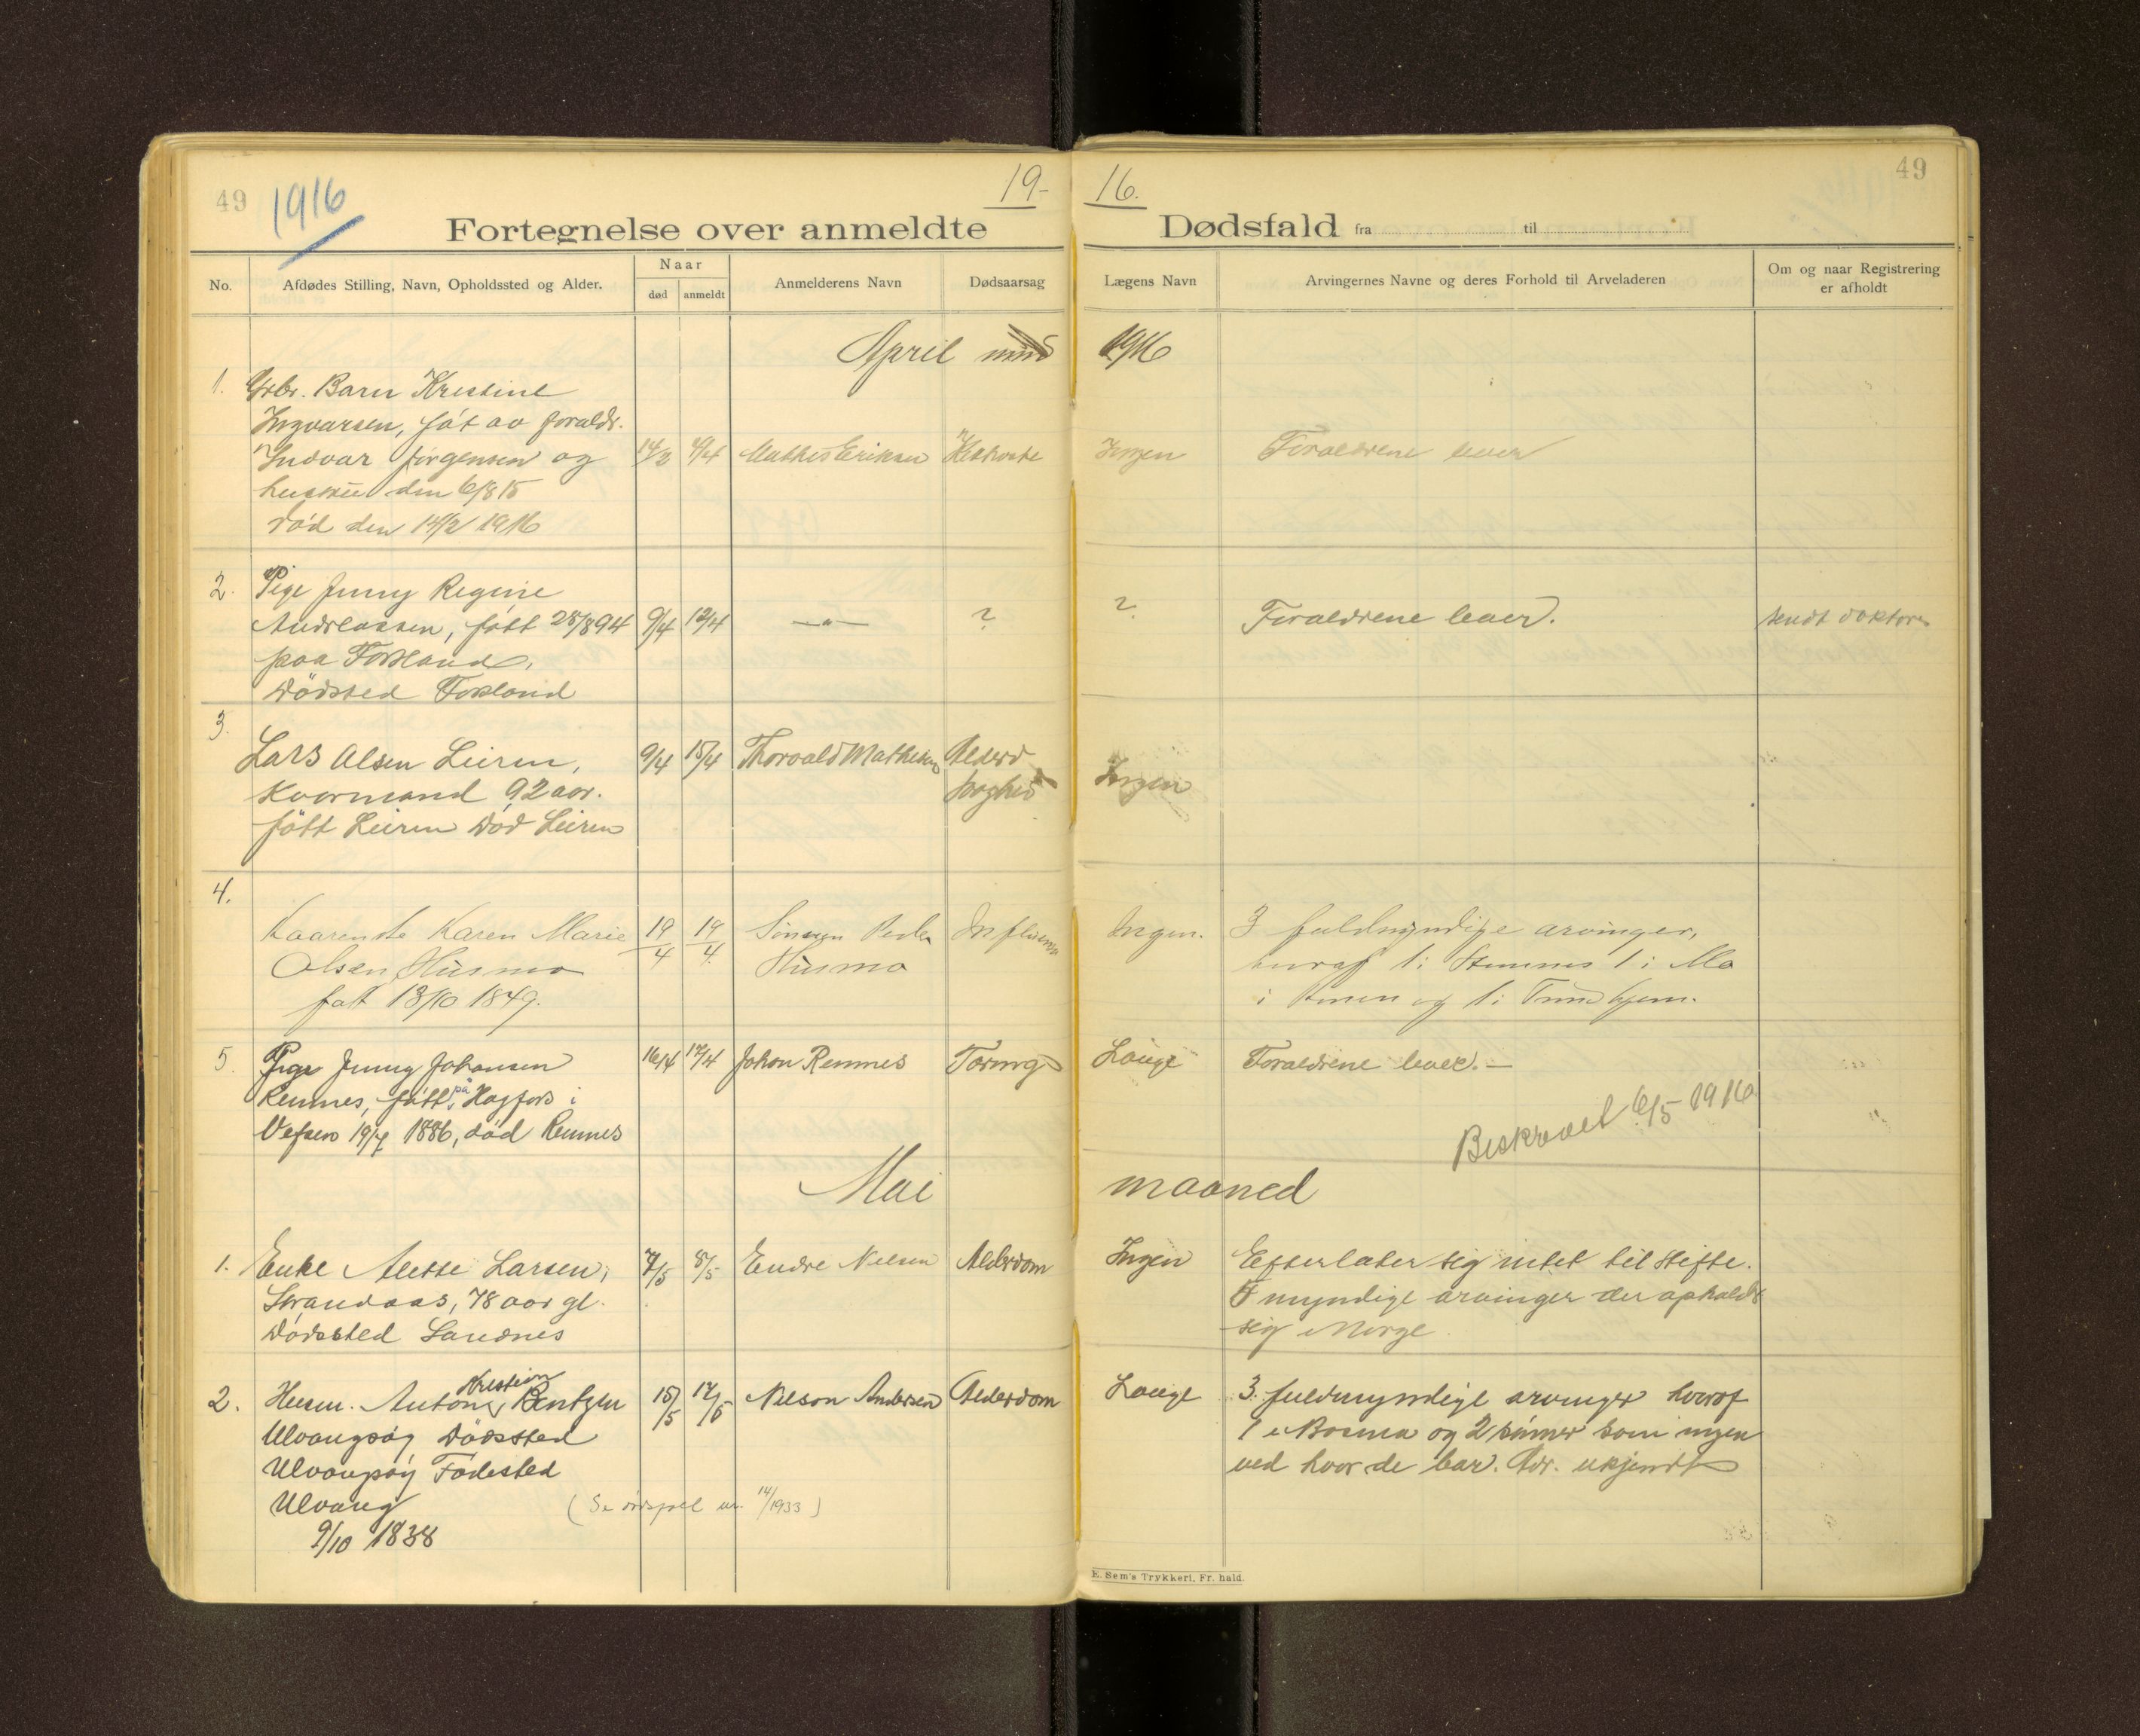 49
1916
19-
16.
49
Fortegnelse over anmeldte
Dødsfald fra til
No.
Afdødes Stilling, Navn, Opholdssted og Alder.
Naar
død
anmeldt
Anmelderens Navn
Dødsaarsag
Lægens Navn
Arvingernes Navne og deres Forhold til Arveladeren
Om og naar Registrering
er afholdt
April
1916
1. Barn Kristine
Ingvarsen, føt av foraldr.
Indvar Jørgensen og
hustru den 6/8 15
død den 14/2 1916
14/2
Mathis Eriksen
Kikhoste
Ingen
Foraldrene lever
2. Pige Jenny Regine
Andreassen, født 25/8 94
paa Forsland,
Dödsted Forsland
9/4
12/4
—„—
?
?
Foraldrene lever.
sendt doktoren
3.
Lars Olsen Leiren,
Kaarmand 92 aar.
født Leiren Død Leiren
9/4
15/4
Thorvald Mathisen
Alderd
Ingen
4.
Kaarenke Karen Marie
Olsen Husmo
født 13/10 1849.
19/4
19/4
Simon Peder
Husmo
Influensa
Ingen.
3 fuldmyndige arvinger,
hvraf 1 i Stamnes 1 i Mo
i Ranen og 1 i Trondhjem.
5. Pige Jenny Johansen
Remnes, født på Hagfors i
Vefsen 19/7 1886, død Remnes
16/4
17/4
Johan Remnes
Tæring
Lange
Foraldrene lever. —
Beskrevet 6/5 1916
Mai
maaned
1. Enke Alette Larsen,
Strandaas, 78 aar gl.
Dödssted Sandnes
7/5
8/5
Endre Nilsen
Alderdom
Ingen
Efterlater sig intet til skifte.
5 myndige arvinger der opholdr
sig i Norge
2. Husm. Anton Kristian Bentzen
Ulvangsøy Dödssted
Ulvangsøy Fødested
Ulvang
9/10 1838
15/5
17/5
Nilson Andersen
Alderdom
Lange
3 fuldmyndige arvinger hvoraf
1 i Bosma og 2 sønner som ingen
ved hvor de bar. Adr. ukjendt
(Se dødsfall nr. 14/1933)
E. Sem's Trykkeri, Fr. hald.